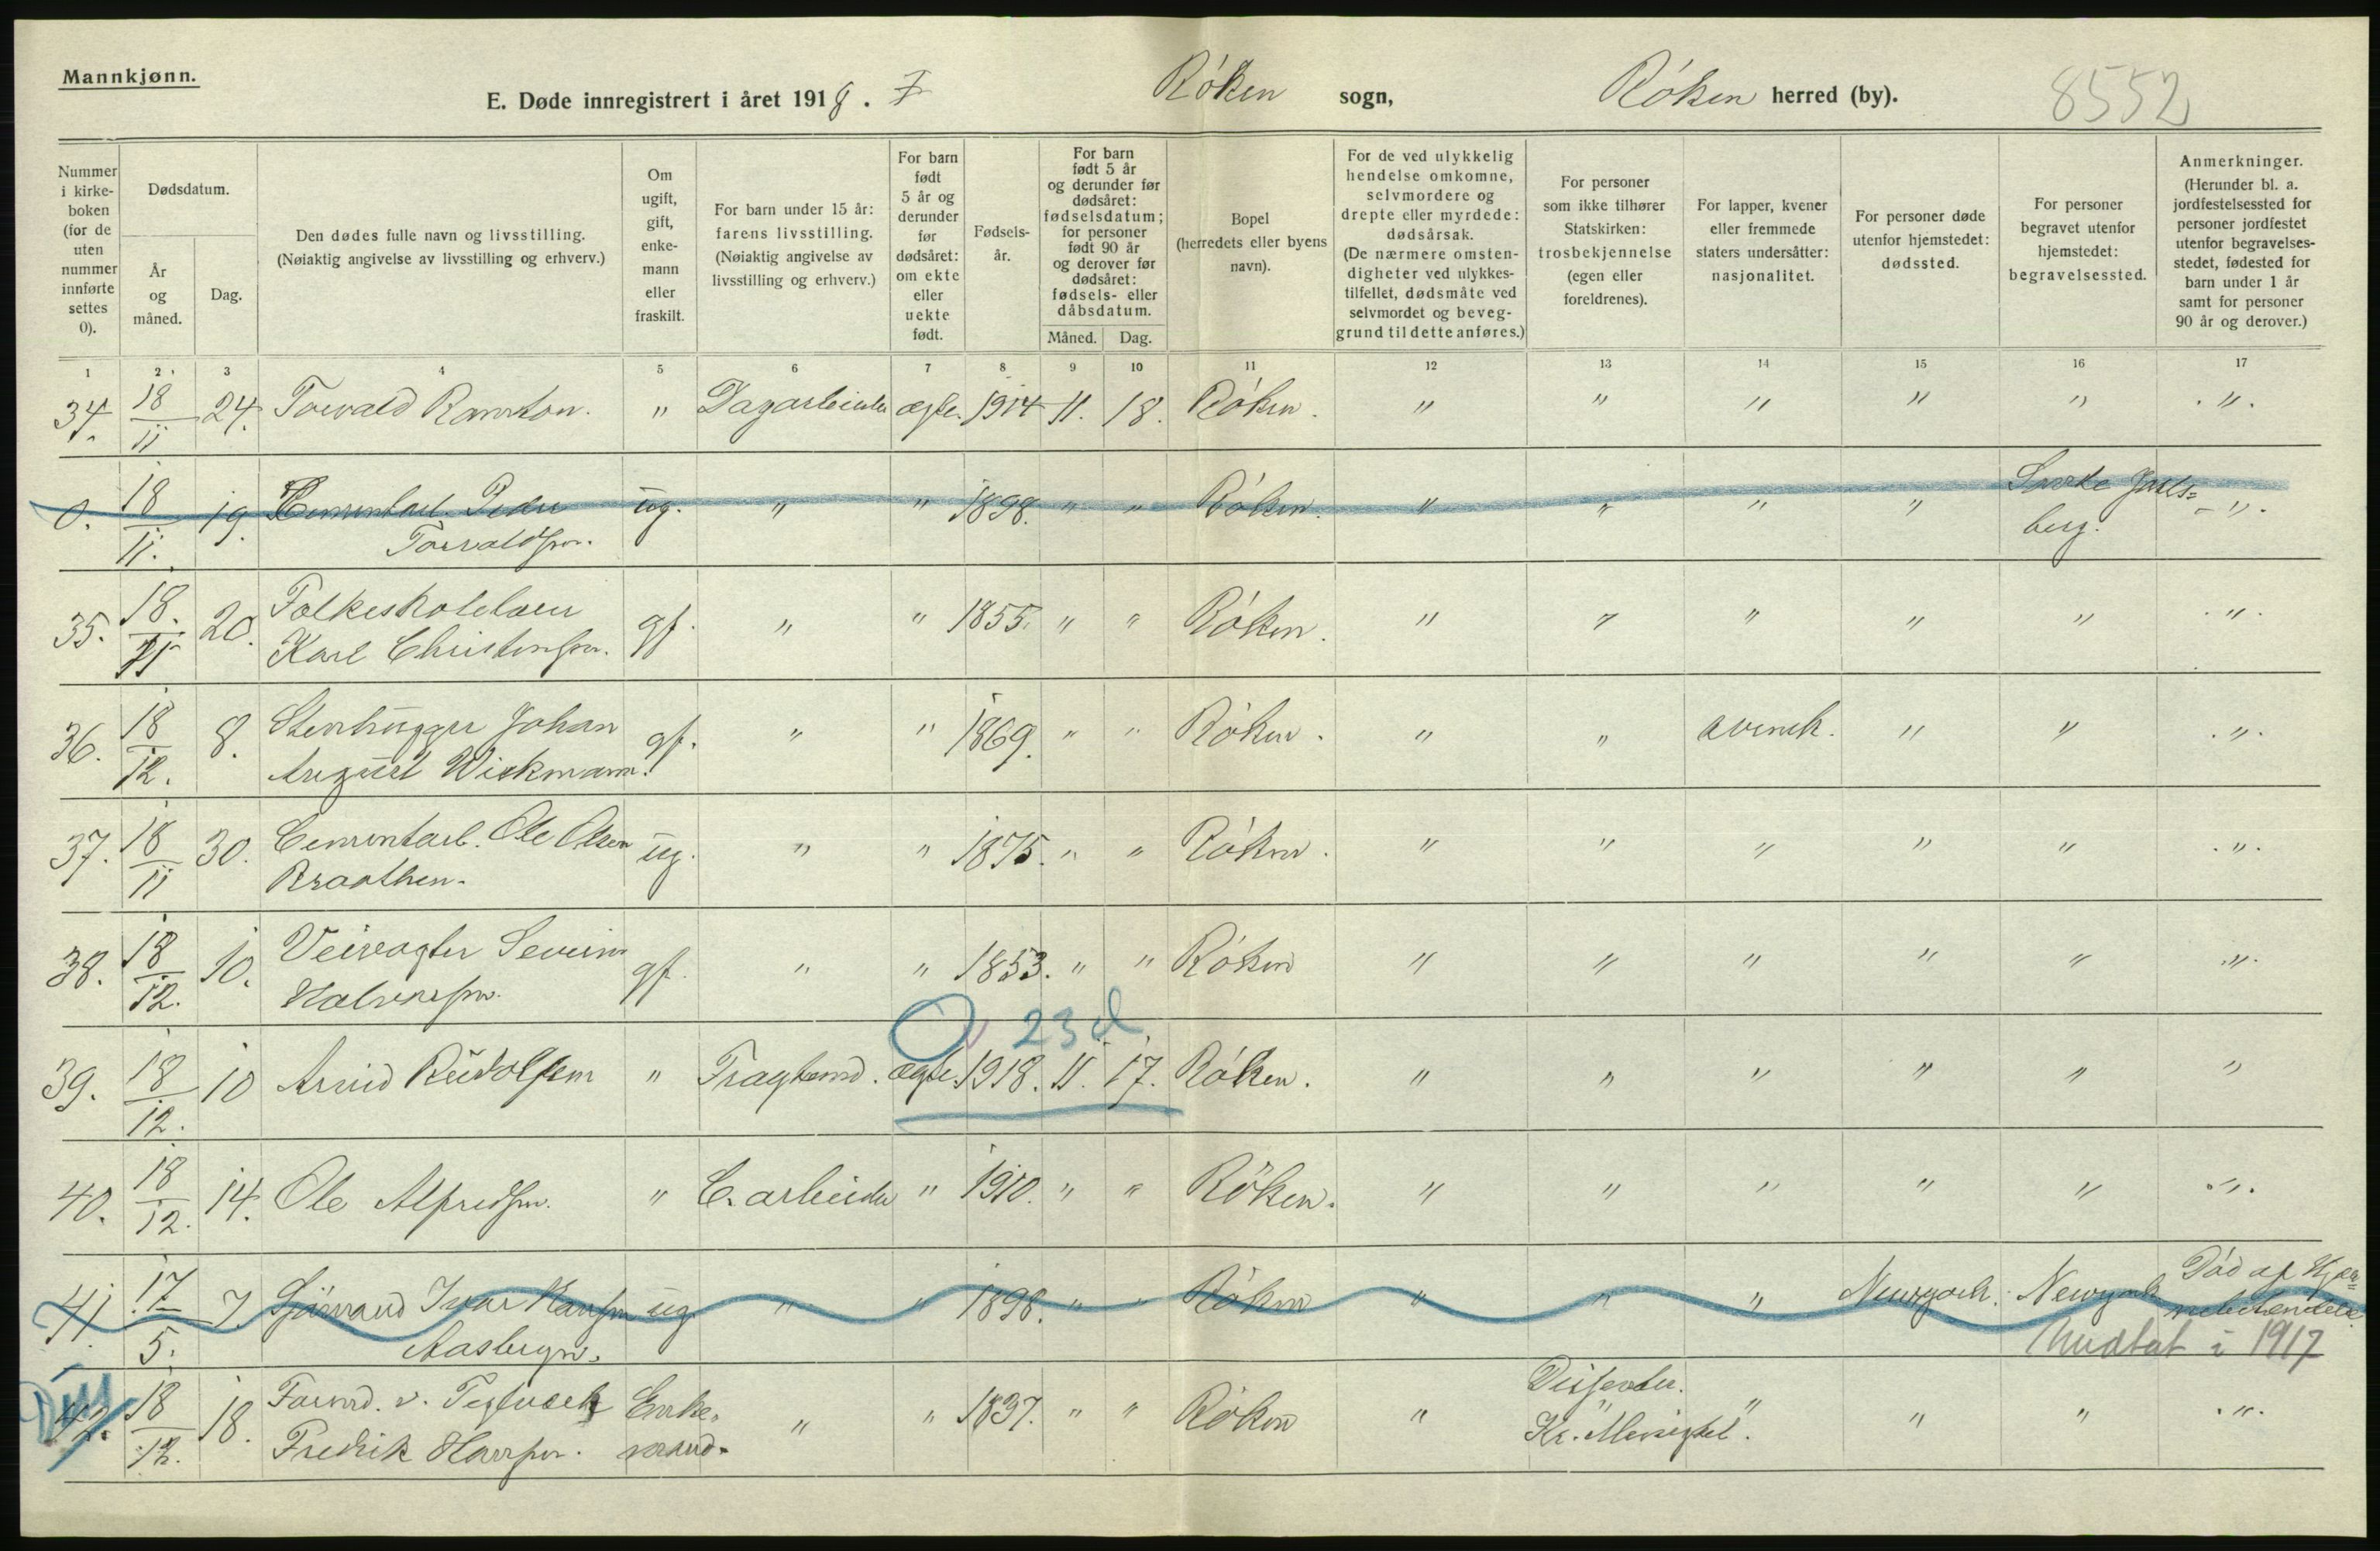 Mannkjønn.
E. Døde innregistrert i året 1918. 7
Røken sogn,
Røken herred (by).
8552
Nummer i kirke-boken (for de uten nummer innførte settes 0).
Dødsdatum.
År og måned.
Dag.
Den dødes fulle navn og livsstilling.
(Nøiaktig angivelse av livsstilling og erhverv.)
Om ugift, gift, enke-mann eller fraskilt.
For barn under 15 år: farens livsstilling.
(Nøiaktig angivelse av livsstilling og erhverv.)
For barn født 5 år og derunder før dødsåret: om ekte eller uekte født.
Fødsels-år.
For barn født 5 år og derunder før dødsåret: fødselsdatum; for personer født 90 år og derover før dødsåret: fødsels- eller dåbsdatum.
Måned.
Dag.
Bopel
(herredets eller byens navn).
For de ved ulykkelig hendelse omkomne, selvmordere og drepte eller myrdede: dødsårsak.
(De nærmere omsten-digheter ved ulykkes-tilfellet, dødsmåte ved selvmordet og beveg-grund til dette anføres.)
For personer som ikke tilhører Statskirken: trosbekjennelse (egen eller foreldrenes).
For lapper, kvener eller fremmede staters undersåtter: nasjonalitet.
For personer døde utenfor hjemstedet: dødssted.
For personer begravet utenfor hjemstedet: begravelsessted.
Anmerkninger.
(Herunder bl. a. jordfestelsessted for personer jordfestet utenfor begravelses-stedet, fødested for barn under 1 år samt for personer 90 år og derover.)
1 2 3 4 5 6 7 8 9 10 11 12 13 14 15 16 17
34. 18/11 24. Torvald Ramton. " Dagarbeider ægte. 1914 11. 18. Røken. " " " " " "
0. 18/11. 19. Cementarb. Peder ug. " " 1898. " " Røken. " " " " Jarls=
Torvaldsen. berg. "
35. 18./11 20. Folkeskolelærer
Karl Christensen. gf. " " 1855. " " Røken. " " " " " "
36. 18/12. 8. Stenhugger Johan
August Wickmann. gf. " " 1869. " " Røken. " " svensk. " " "
37. 18/11 30. Cementarb. Ole Olsen ug. " " 1875. " " Røken. " " " " " "
Braathen.
38. 18/12. 10. Veivogter Severin
Halvorsen. gf. " " 1853. " " Røken " " " " " "
23 d
39. 18/12. 10 Arvid Rudolfsen " Fragtemd. ægte. 1918. 11. 17. Røken. " " " " " "
40. 18/12. 14. Ole Alfredsen. " C. arbeider " 1910. " " Røken. " " " " " "
41. 17/5. 7. Sjømand Ivar Hansen ug " " 1898. " " Røken " " " Newyork. Newyork Død af Hjær=
Aasbryn. nebetændelse.
Medtat i 1917
42. 18/12. 18. Formd. v. Teglverk Enke-
Fredrik Hansen. mand. " " 1837. " " Røken " Dissenter.
Kr. "Menighet". " " "